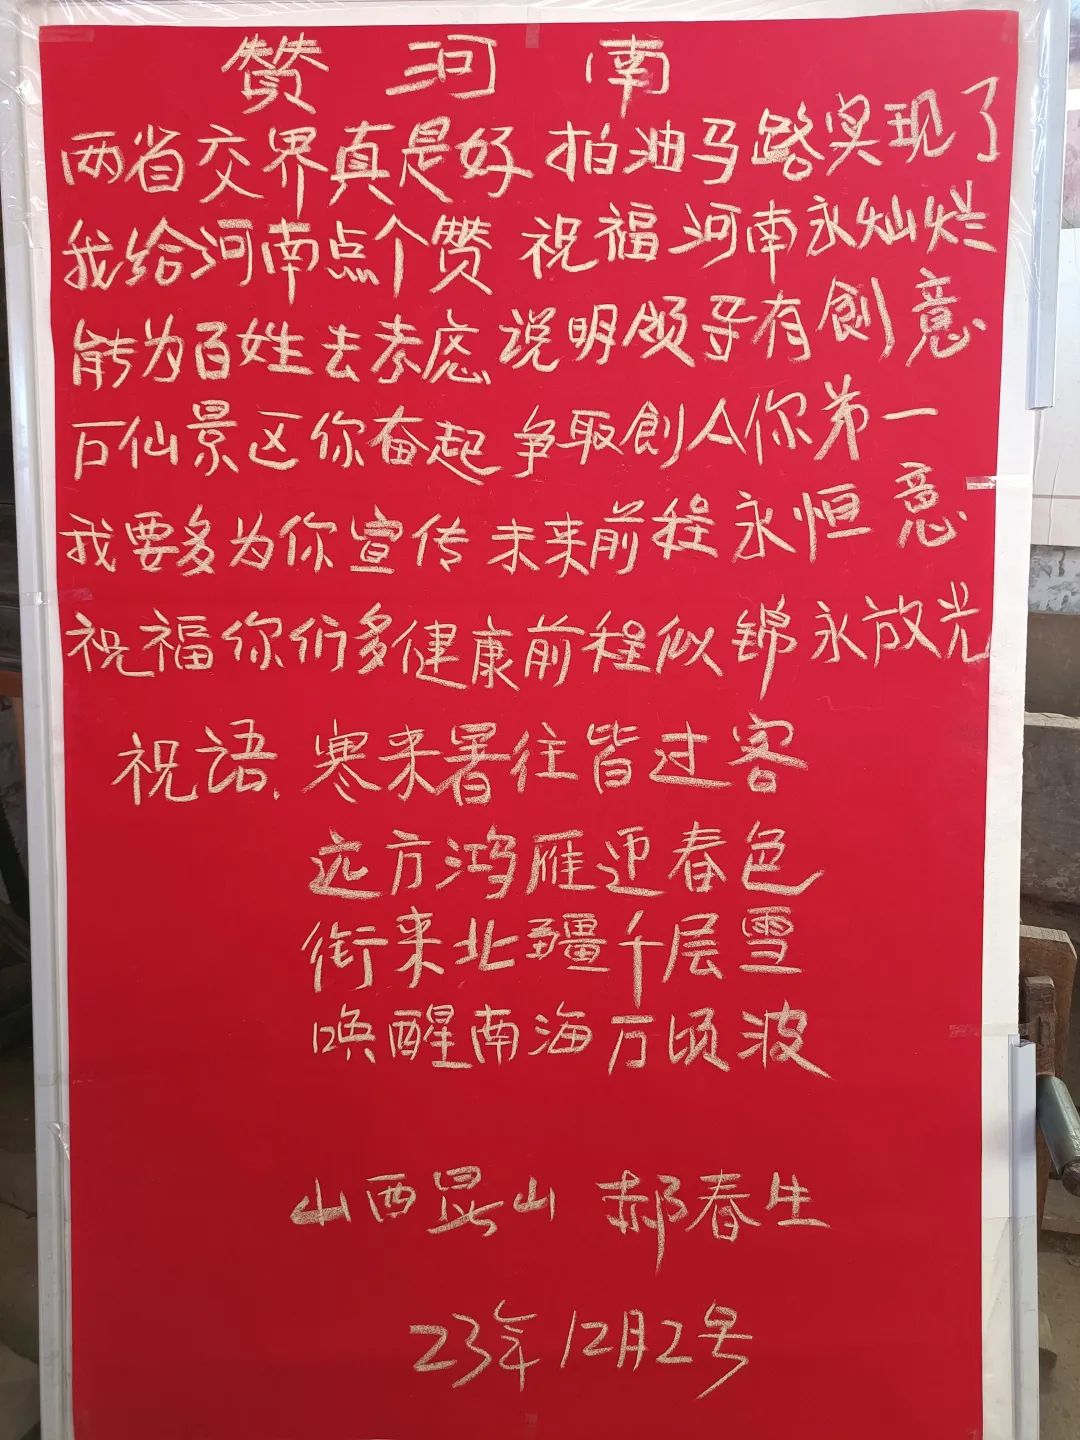 赞河南
两省交界真是好 拍油马路实现了
我给河南点个赞 祝福河南永灿烂
能为百姓去考虑 说明领导有創意
万仙景区你奋起 争取創人你第一
我要多为你宣传 未来前程永恒意
祝福你们多健康前程似锦永放光
祝语.寒来署往皆过客
远方鸿雁迎春色
衔来北疆千层雪
唤醒南海万顷波
山西昆山 郝春生
23年12月2号